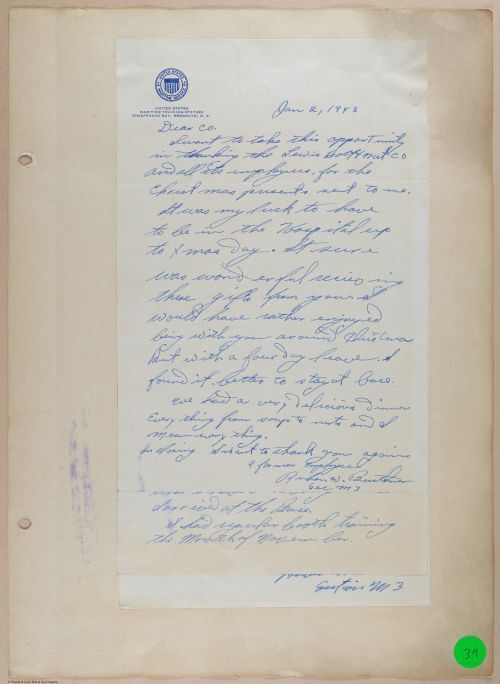 UNITED STATES
MARITIME TRAINING STATION
SHEEPSHEAD BAY, BROOKLYN, N.Y.
Jan 2, 1943
Dear Co.
I want to take this opportunity
in thanking the Lewis Bolt & Nut Co
and all its employees, for the
Christmas presents sent to me.
It was my luck to have
to be in the Hospital up
to Xmas Day. It sure
was wonderful recieving
these gifts from you. I
would have rather enjoyed
being with you around
But with a four day leave. I
found it better to stay at base.
We had a very delicious dinner
Every thing from soup to nuts and I
mean every thing.
In closing I want to thank you again
a former Employee
W.
Sec M3
arrived at the base.
I had regular booth training
the Month of November.
Section M3
34